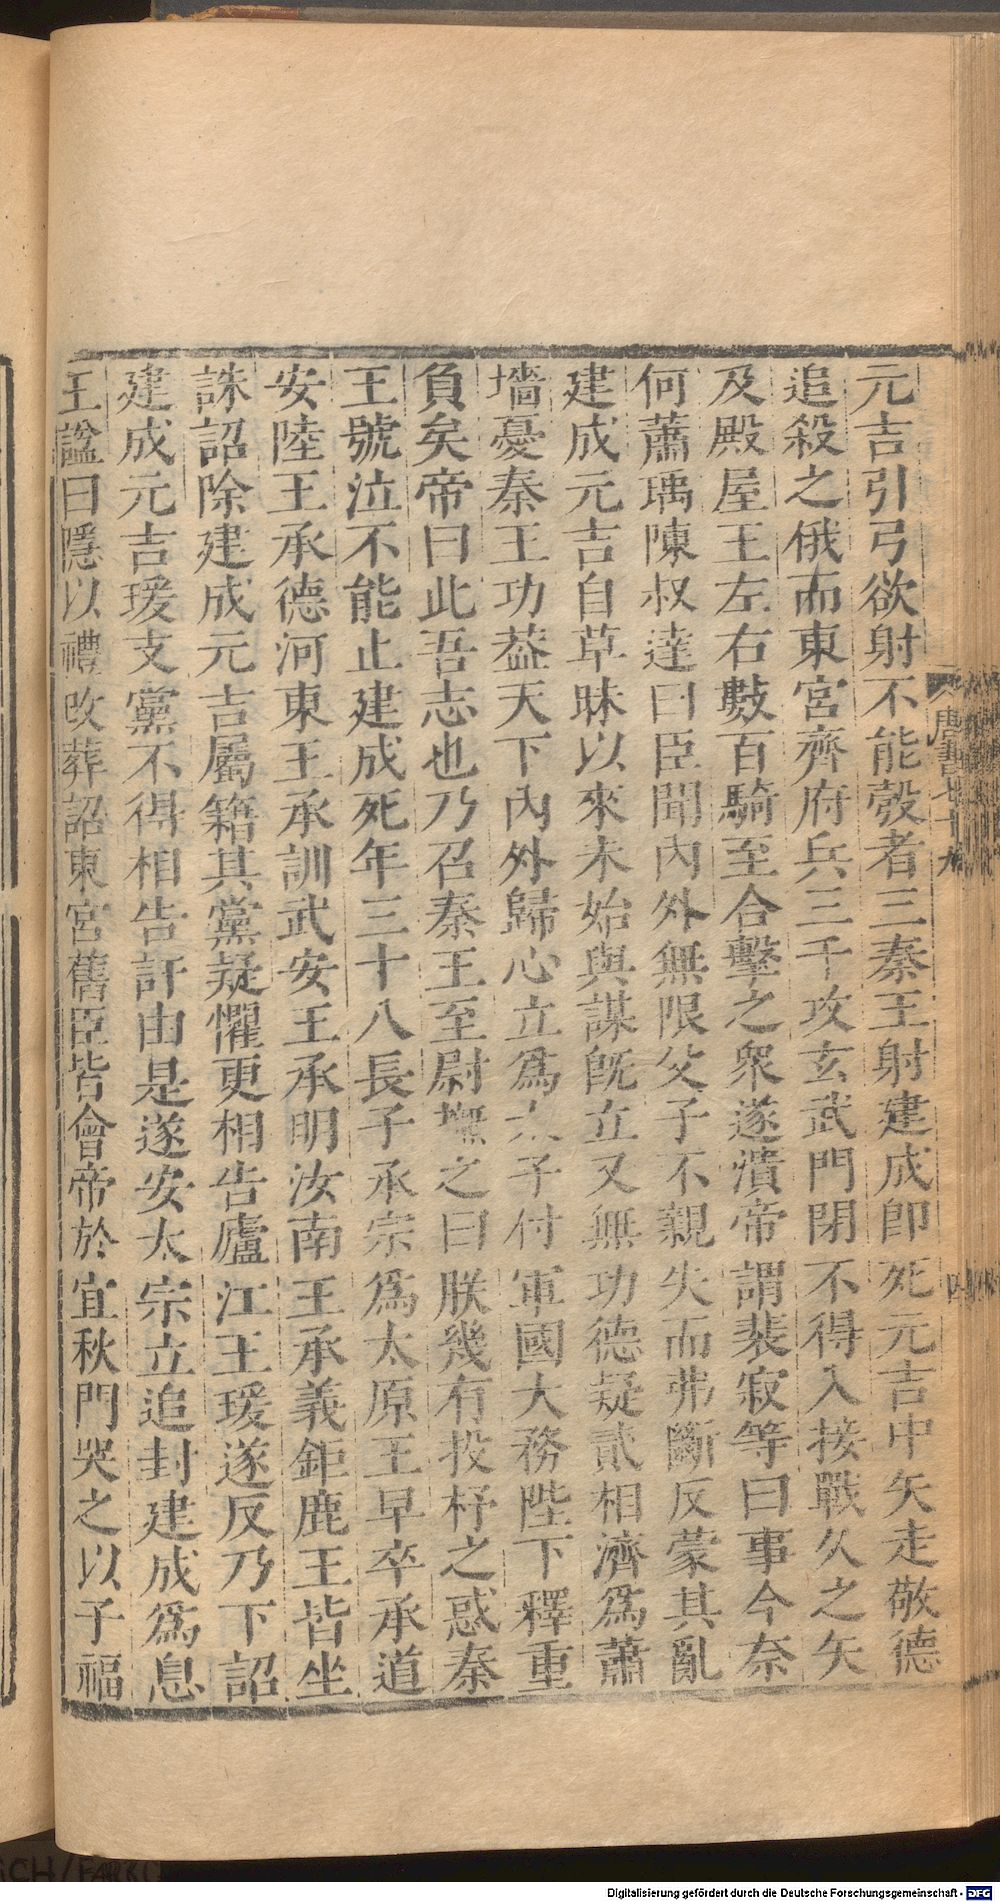 元吉引弓欲射不能彀者三秦王射建成卽死元吉中矢走敬德
追殺之俄而東宮齊府兵三千攻玄武門閉不得入接戰久之矢
及殿屋王左右數百騎至合擊之衆遂潰帝謂裴寂等曰事今奈
何蕭瑀陳叔達曰臣聞內外無限父子不親失而弗斷反蒙其亂
建成元吉自草昧以來未始與謀旣立又無功德疑貳相濟爲蕭
墻憂秦王功葢天下內外歸心立爲太子付軍國大務陛下釋重
負矣帝曰此吾志也乃召秦王至尉撫之曰朕幾有投杼之惑秦
王號泣不能止建成死年三十八長子承宗爲太原王早卒承道
安陸王承德河東王承訓武安王承明汝南王承義鉅鹿王皆坐
誅詔除建成元吉屬籍其黨疑懼更相告廬江王瑗遂反乃下詔
建成元吉瑗支黨不得相告訐由是遂安太宗立追封建成爲息
王諡曰隱以禮改葬詔東宮舊臣皆會帝於宜秋門哭之以子福
唐書七十九
Digitalisierung gefördert durch die Deutsche Forschungsgemeinschaft - DFG